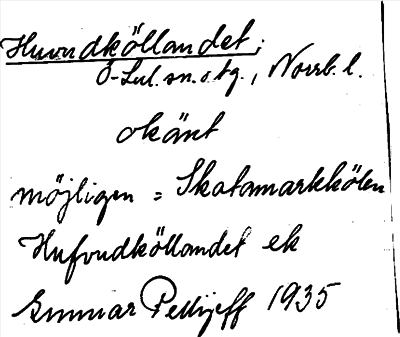 Huvudköllandet;
Ö-Lul. sn. o. tg., Norrb. l.
okänt
möjligen = Skatamarkkölen
Hufvudköllandet ek
Gunnar Pellijeff 1935